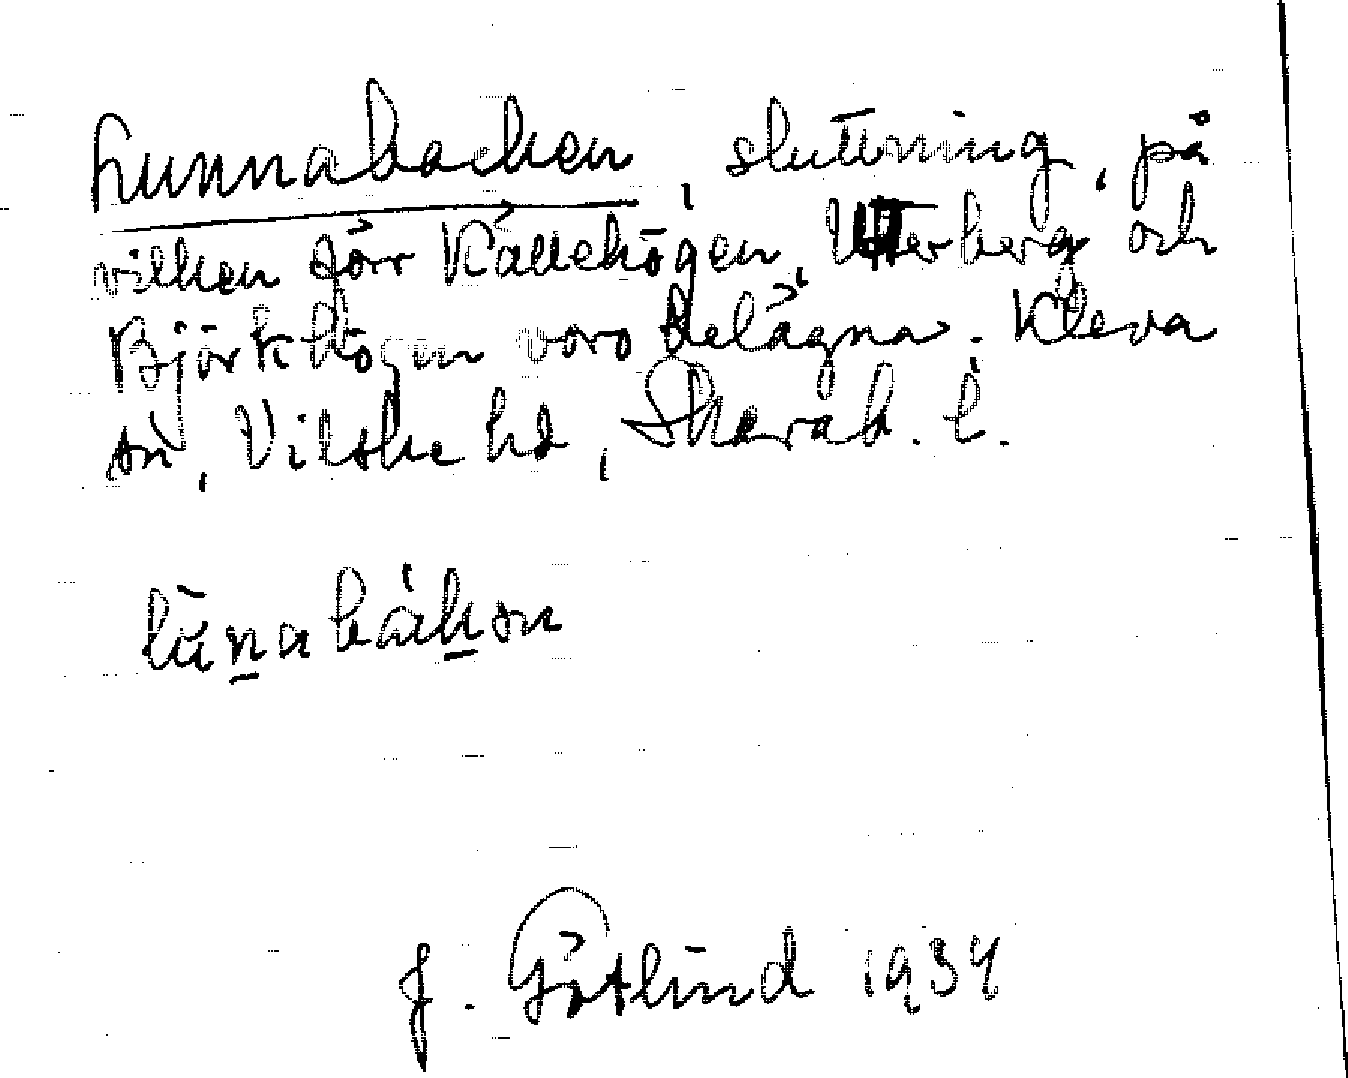 Lunnabacken, sluttning, på
vilken förr Källehögen, Utterberg och
Björkhögen voro belägna. Kleva
sn, Vilske hd, Skarab. l.
lu̅n̲abák̲ən
J. Götlind 1934